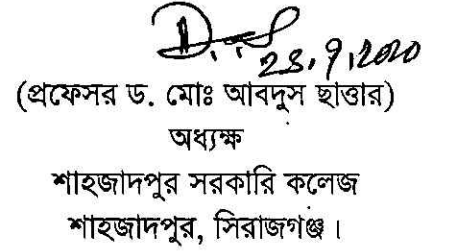 28.9.2020
(প্রফেসর ড. মোঃ আবদুস ছাত্তার)
অধ্যক্ষ
শাহজাদপুর সরকারি কলেজ
শাহজাদপুর, সিরাজগঞ্জ।